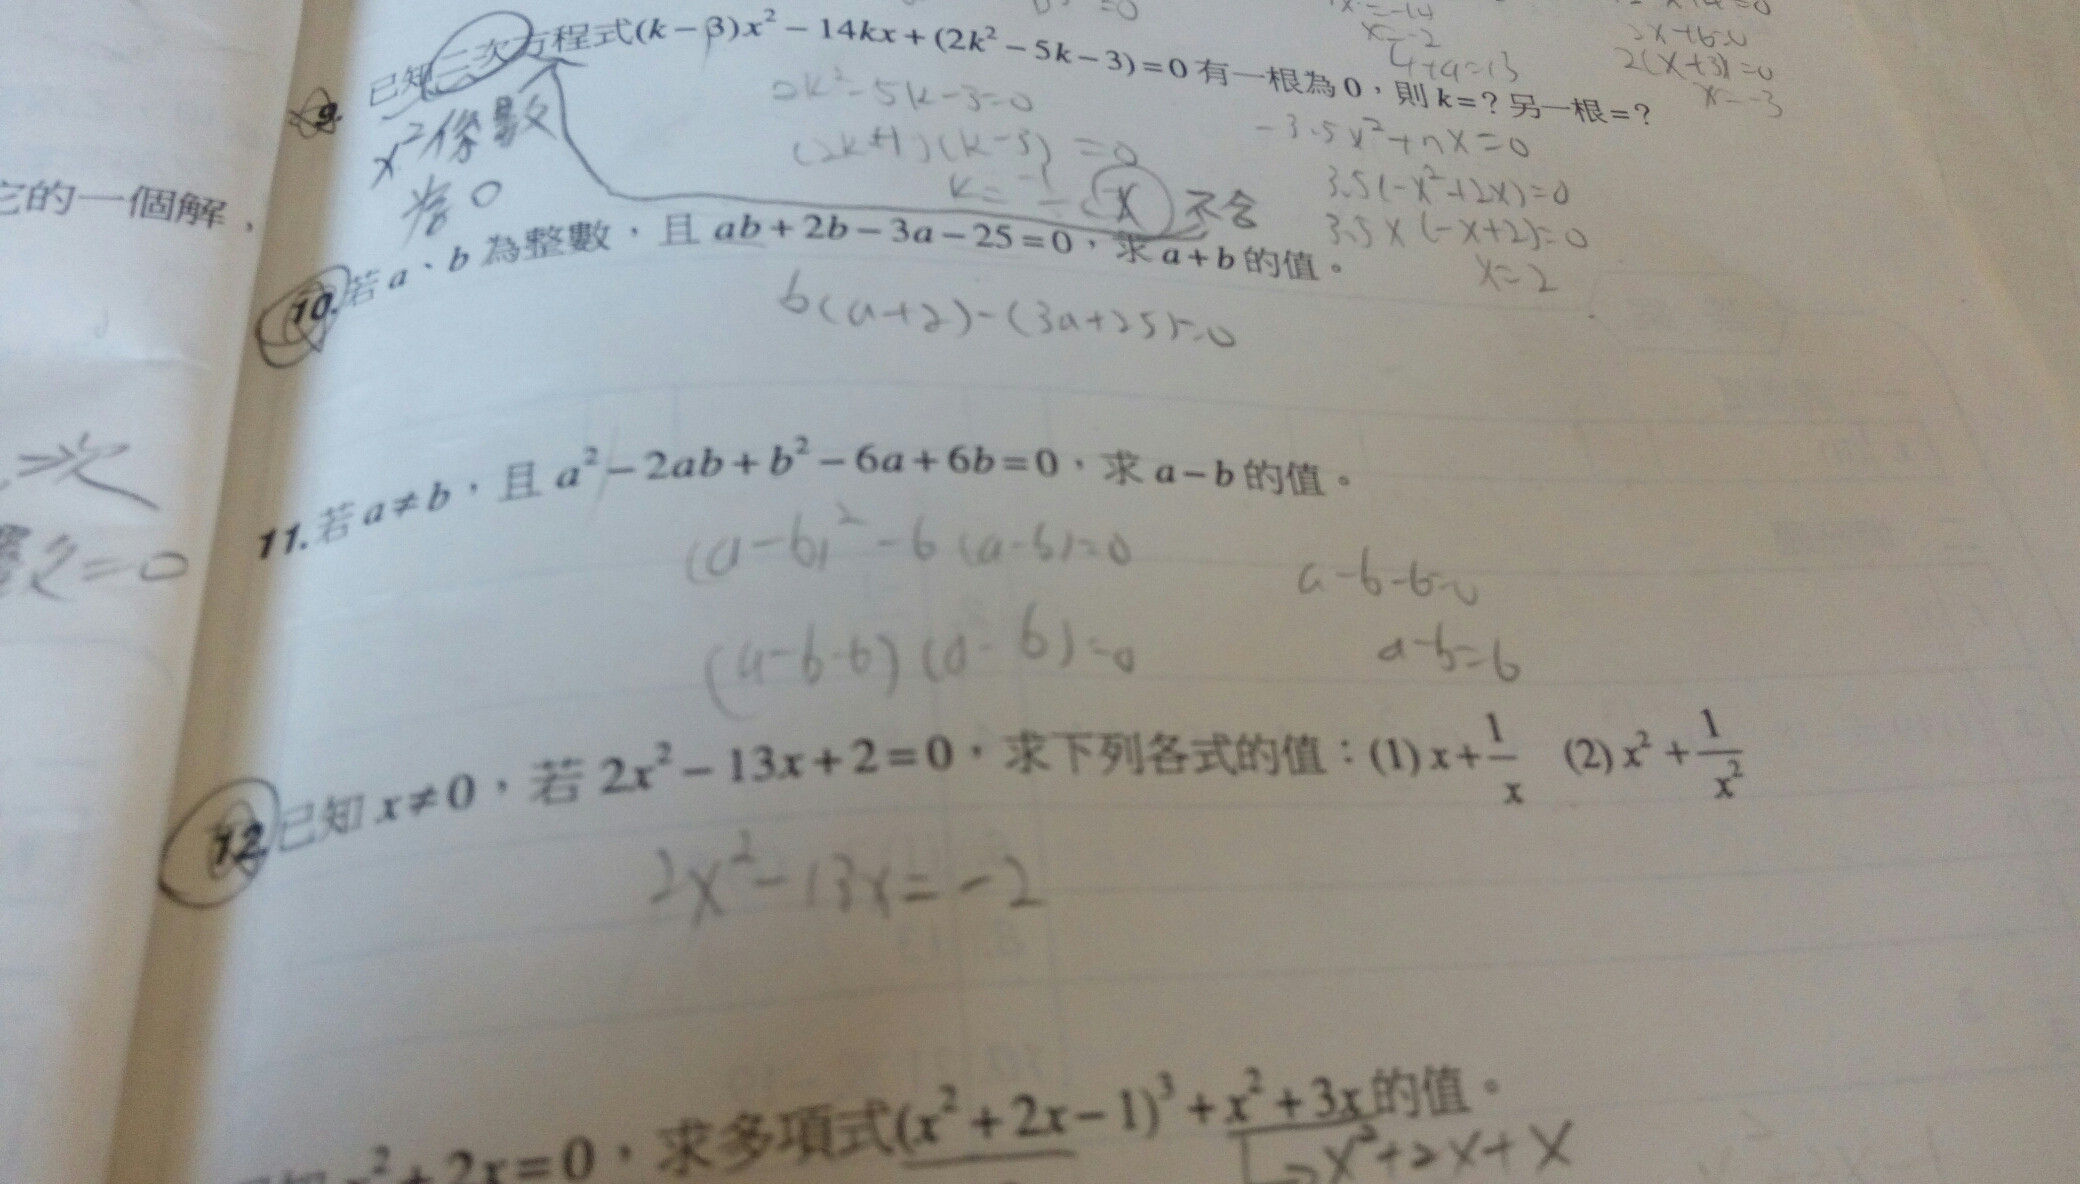 =0
x=-2
4+9=13
2x+6=0
2(x+3)=0
x=-3
9. 已知二次方程式(k-3)x²-14kx+(2k²-5k-3)=0有一根為0，則k=？另一根=？
x²係數
為0
2k²-5k-3=0
(2k+1)(k-3)=0
不合
-3.5x²+7x=0
3.5(-x²+2x)=0
3.5x(-x+2)=0
x=2
它的一個解，
10.若a、b為整數，且ab+2b-3a-25=0，求a+b的值。
b(a+2)-(3a+25)=0
二次
數=0
11.若a≠b，且a²-2ab+b²-6a+6b=0，求a-b的值。
(a-b)²-6(a-b)=0
(a-b-6)(a-b)=0
a-b-6=0
a-b=6
12.已知x≠0，若2x²-13x+2=0，求下列各式的值：(1)x+1/x (2)x²+1/x²
2x²-13x=-2
x²+2x=0，求多項式(x²+2x-1)³+x²+3x的值。
x²+2x+x